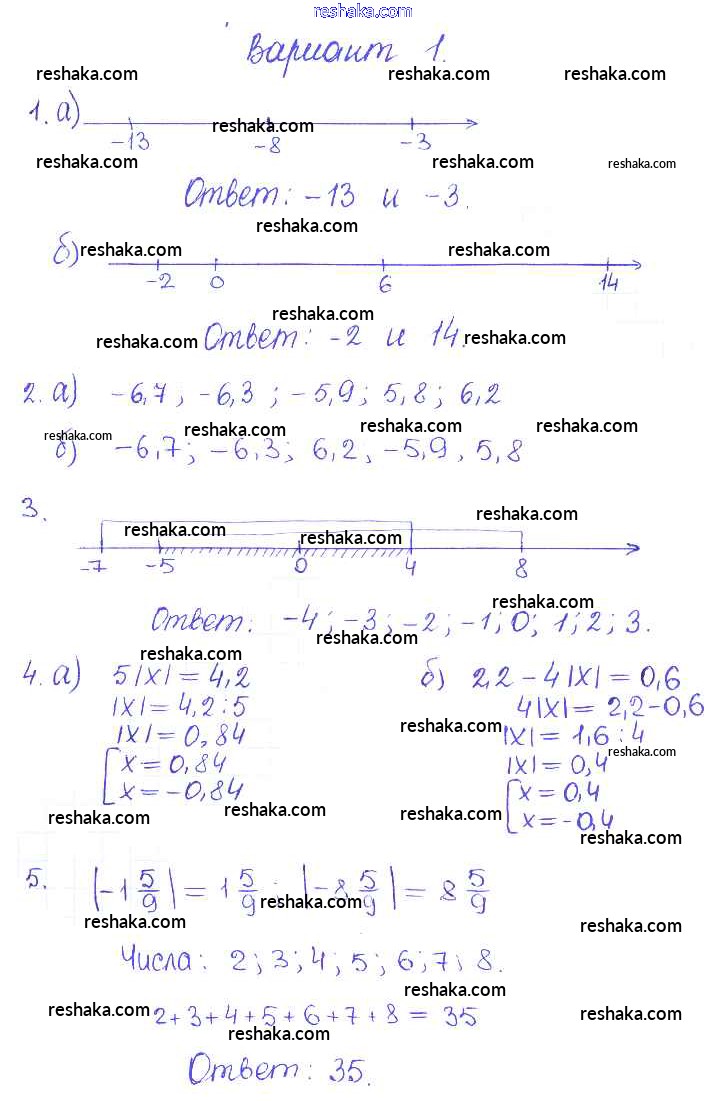 reshaka.com
Вариант 1.
reshaka.com reshaka.com reshaka.com
1. а) reshaka.com
-13 -8 -3
reshaka.com reshaka.com reshaka.com
Ответ: -13 и -3.
reshaka.com
б) reshaka.com reshaka.com
-2 0 6 14
reshaka.com
Ответ: -2 и 14.
reshaka.com reshaka.com
2. а) -6,7; -6,3; -5,9; 5,8; 6,2
reshaka.com reshaka.com reshaka.com reshaka.com
б) -6,7; -6,3; 6,2, -5,9, 5,8
3. reshaka.com
reshaka.com reshaka.com
-7 -5 0 4 8
reshaka.com
Ответ: -4; -3; -2; -1; 0; 1; 2; 3.
reshaka.com reshaka.com
4. а) 5|x| = 4,2 б) 2,2 - 4|x| = 0,6
|x| = 4,2 : 5 4|x| = 2,2 - 0,6
reshaka.com
|x| = 0,84 |x| = 1,6 : 4
reshaka.com
x = 0,84 |x| = 0,4
x = -0,84 x = 0,4
x = -0,4
reshaka.com reshaka.com reshaka.com
reshaka.com
5. |-1 5/9| = 1 5/9; |-8 5/9| = 8 5/9
reshaka.com reshaka.com reshaka.com
Числа: 2; 3; 4; 5; 6; 7; 8.
reshaka.com
reshaka.com 2+3+4+5+6+7+8 = 35 reshaka.com
reshaka.com
Ответ: 35.